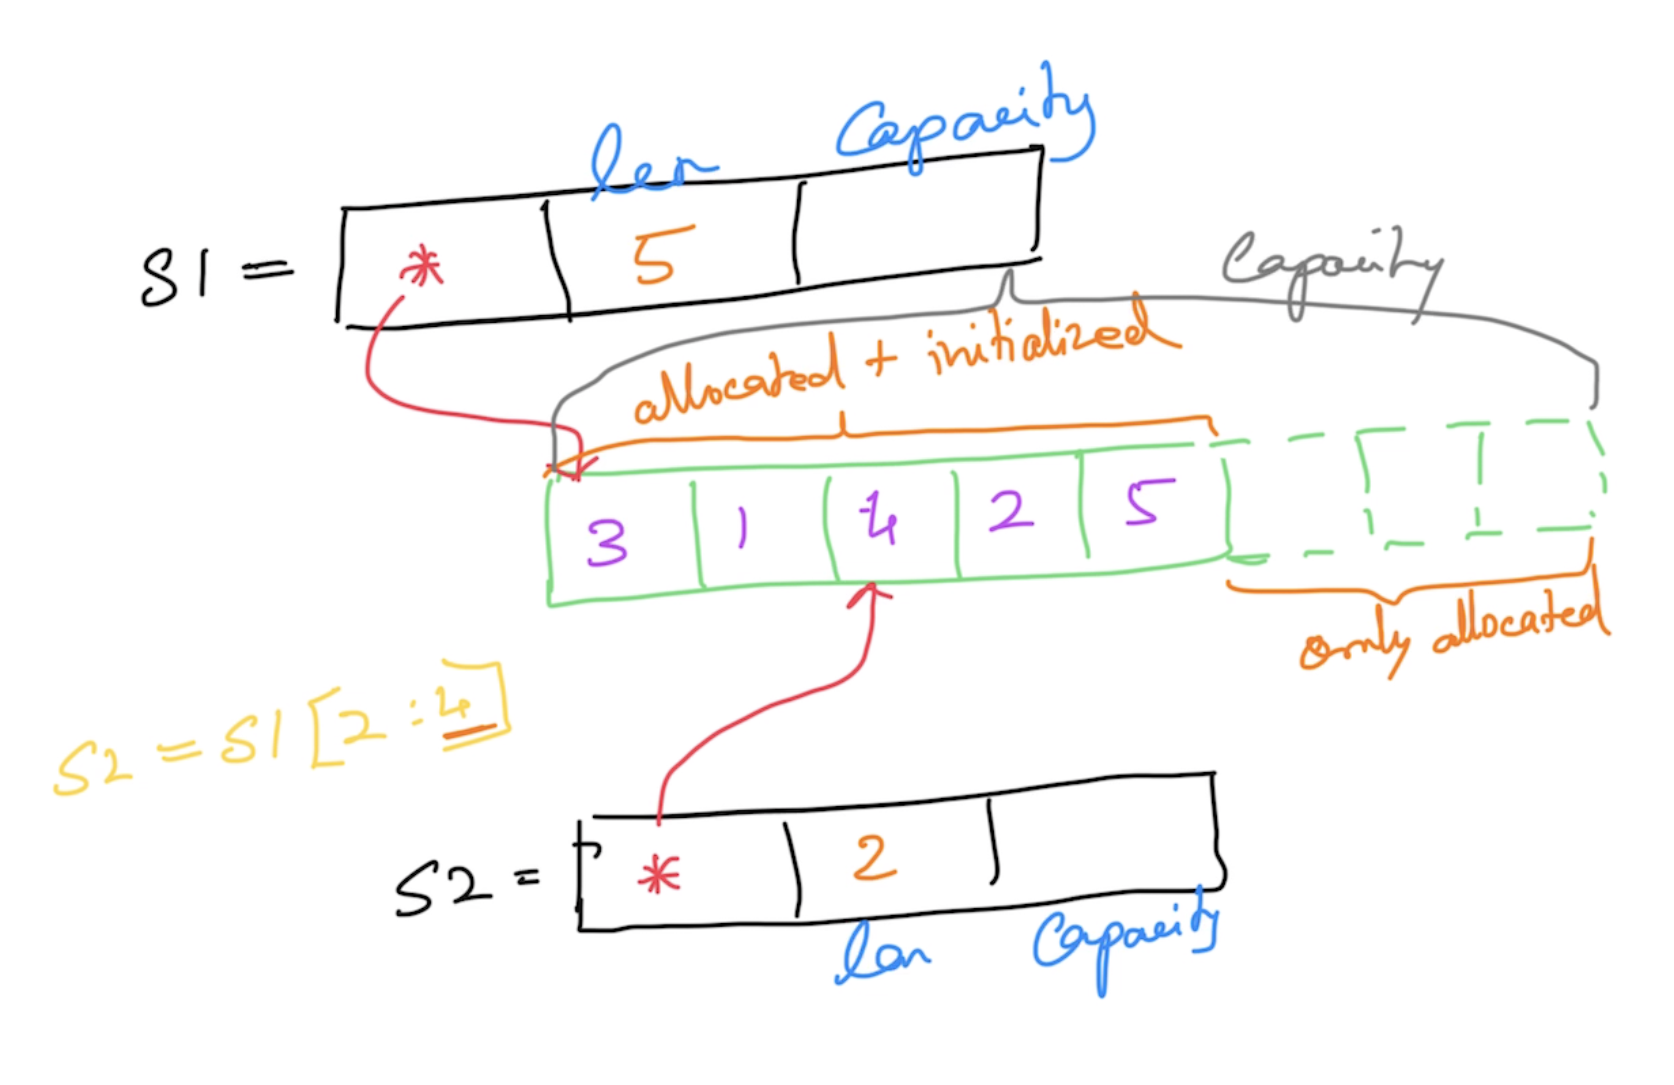 len Capacity
S1 = * 5
Capacity
allocated + initialized
3 1 4 2 5
only allocated
S2 = S1[2:4]
S2 = * 2
len Capacity